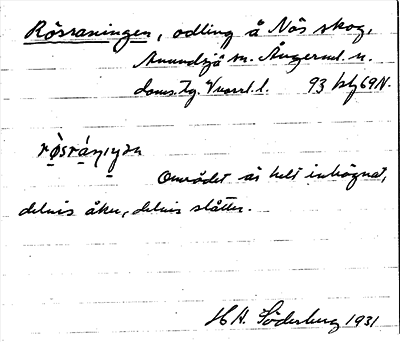 Rösrasningen, odling å Näs skog,
Anundsjö sn. Ångerml. n.
doms. tg. Vnorrl. l. 93 btg 69 N.
Området är helt inhägnat,
delvis åker, delvis slåtter.
H A. Söderberg 1931